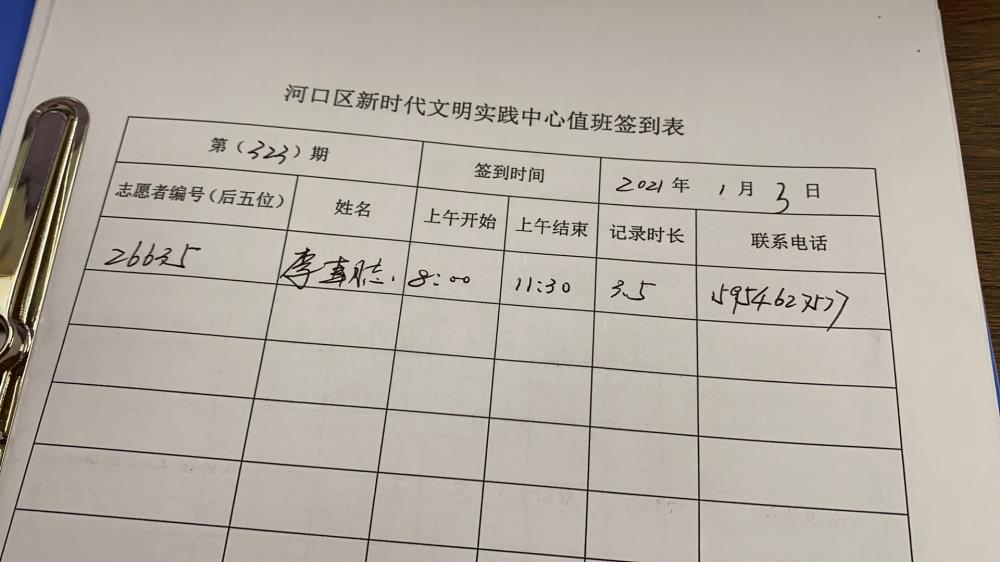 河口区新时代文明实践中心值班签到表
第（323）期 签到时间 2021年 1月 3日
志愿者编号（后五位） 姓名 上午开始 上午结束 记录时长 联系电话
李 8:00 11:30 3.5